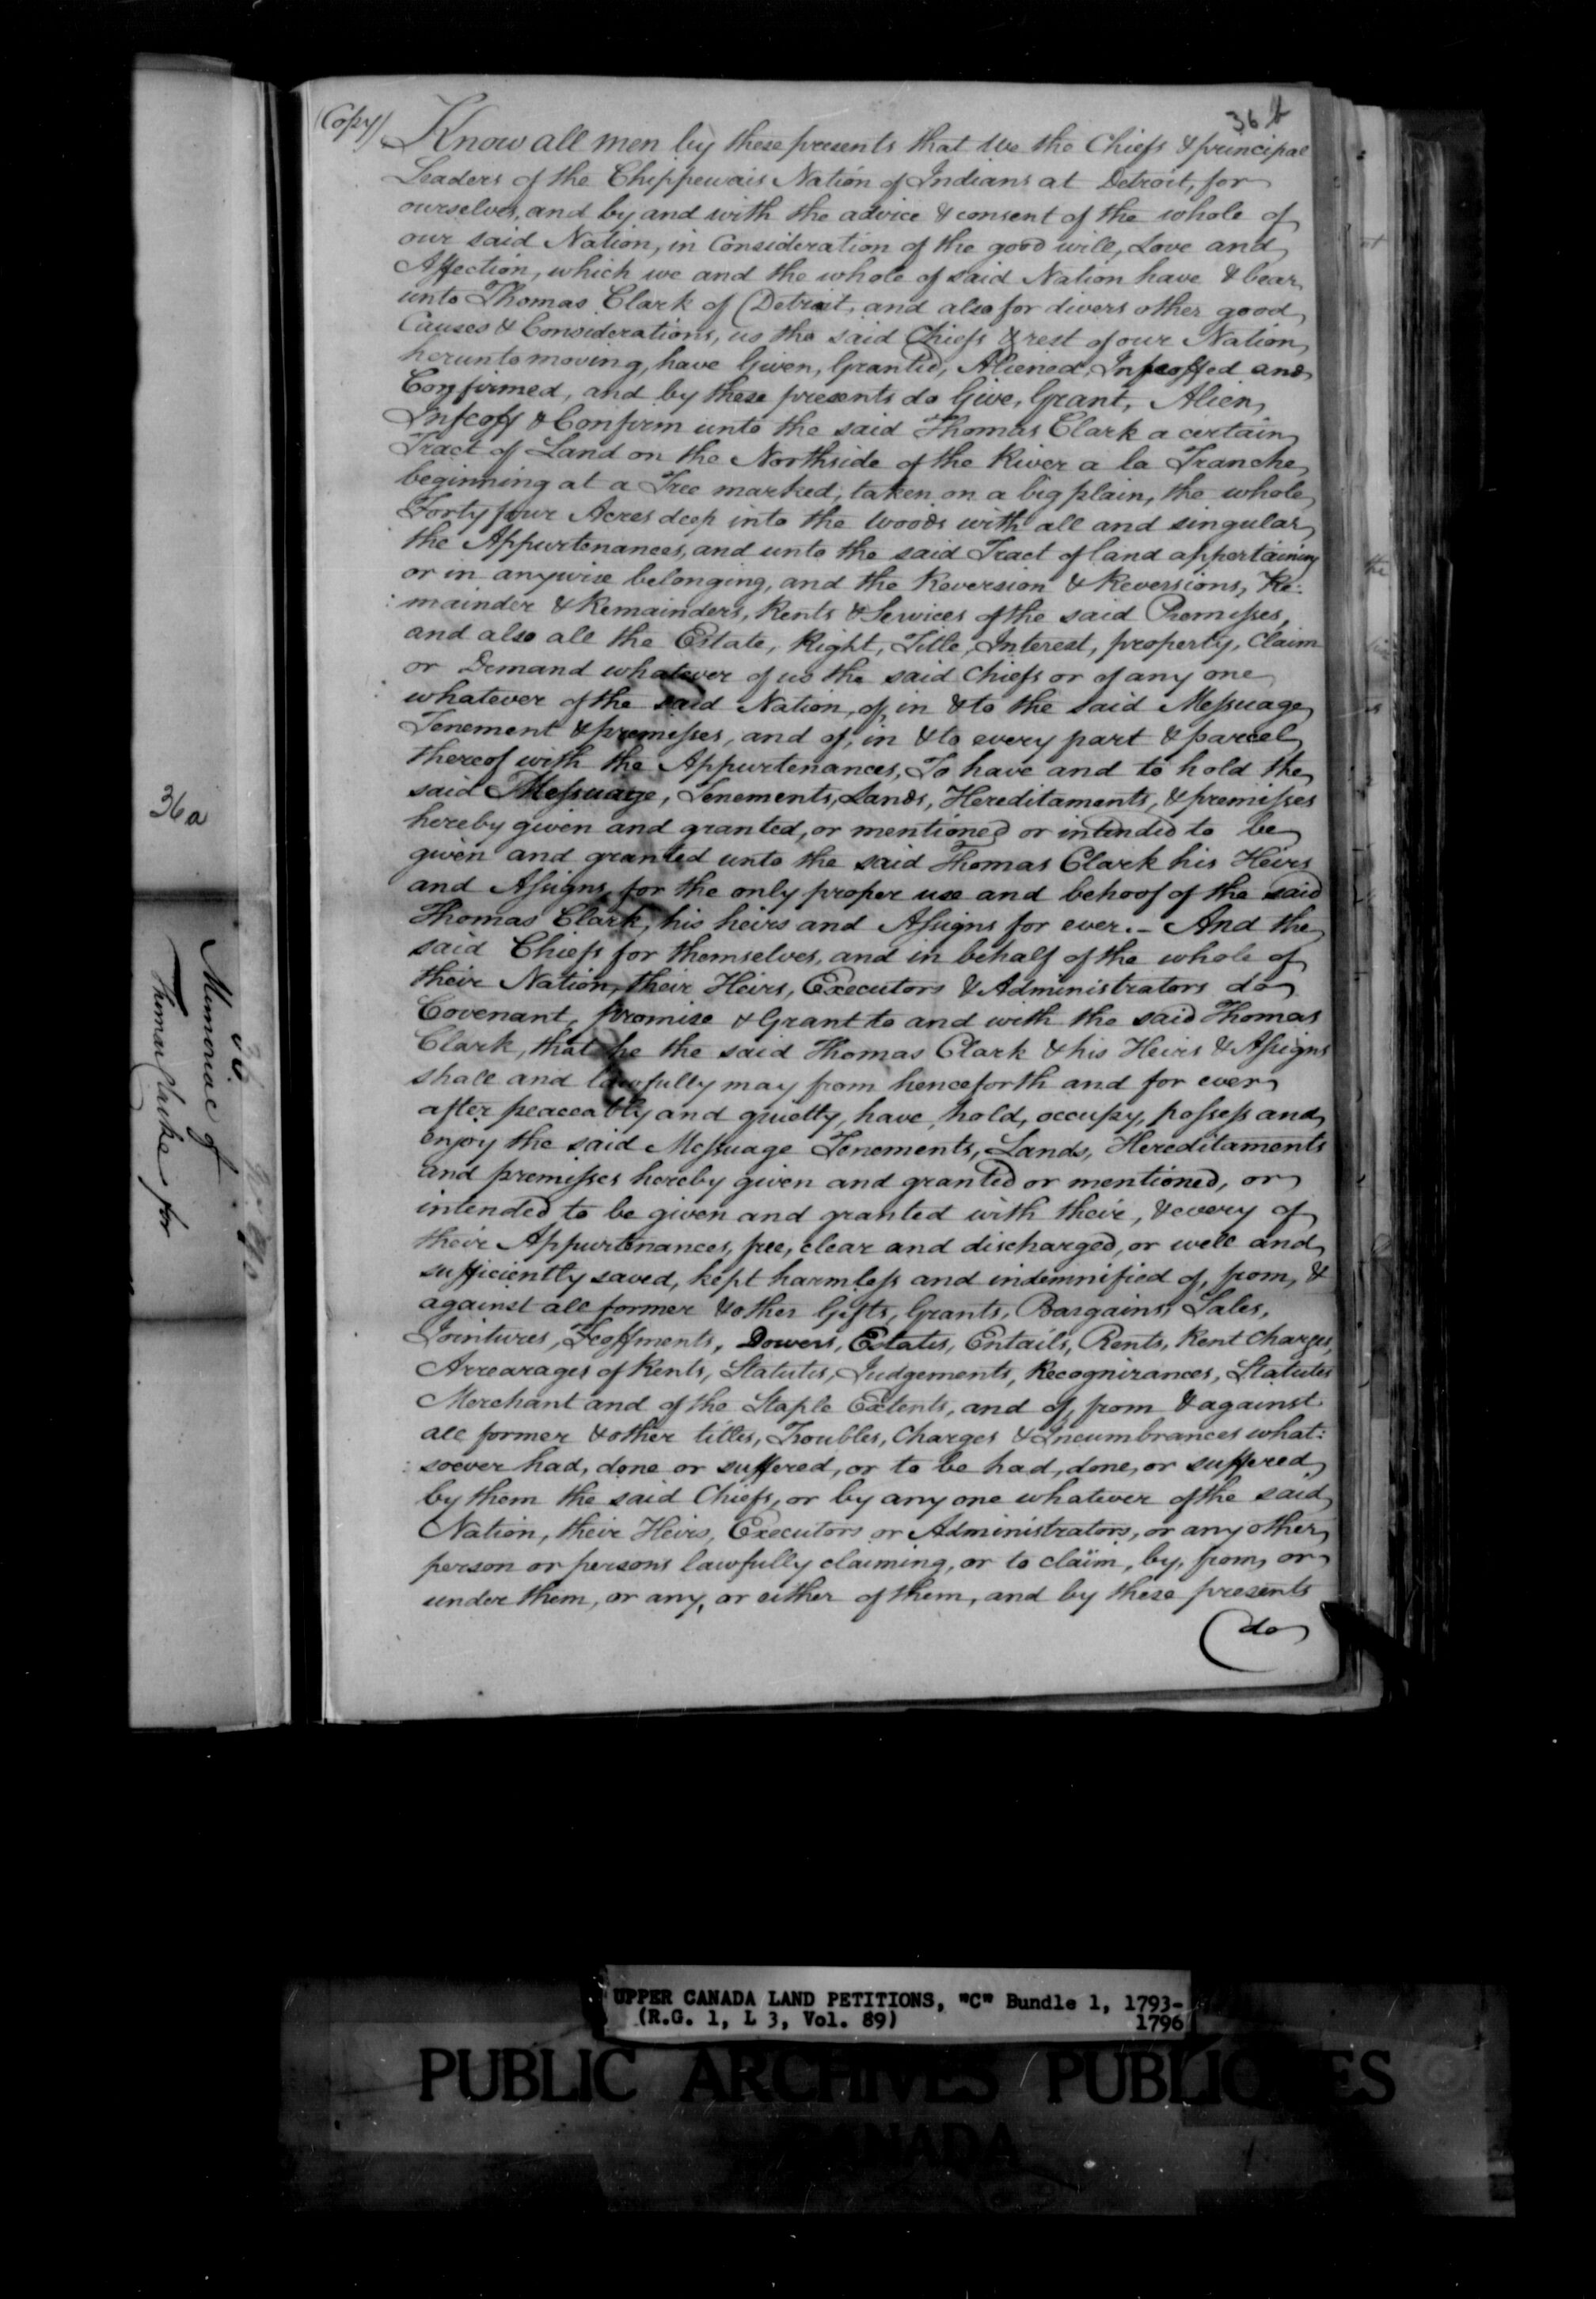 36 b
(Copy) Know all men by these presents that We the Chiefs & principal
Leaders of the Chippewais Nation of Indians at Detroit, for
ourselves, and by and with the advice & consent of the whole of
our said Nation, in Consideration of the good will, Love and
Affection, which we and the whole of said Nation have & bear
unto Thomas Clark of Detroit, and also for divers other good
Causes & Considerations, us the said Chiefs & rest of our Nation
herunto moving, have Given, Granted, Aliened, Infeoffed and
Confirmed, and by these presents do Give, Grant, Alien,
Infeoff & Confirm unto the said Thomas Clark a certain
Tract of Land on the Northside of the River a la Tranche
beginning at a Tree marked, taken on a big plain, the whole
Forty four Acres deep into the Woods with all and singular
the Appurtenances, and unto the said Tract of land appertaining
or in anywise belonging, and the Reversion & Reversions, Re:
:mainder & Remainders, Rents & Services of the said Premisses,
and also all the Estate, Right, Title, Interest, property, Claim
or Demand whatever of us the said Chiefs or of any one
whatever of the said Nation, of, in & to the said Messuage
Tenement & premisses, and of, in & to every part & parcel
thereof with the Appurtenances, To have and to hold the
said Messuage, Tenements, Lands, Hereditaments, & premisses
hereby given and granted, or mentioned or intended to be
given and granted unto the said Thomas Clark his Heirs
and Assigns, for the only proper use and behoof of the said
Thomas Clark, his heirs and Assigns for ever.- And the
said Chiefs for themselves, and in behalf of the whole of
their Nation, their Heirs, Executors & Administrators do
Covenant, promise & Grant to and with the said Thomas
Clark, that he the said Thomas Clark & his Heirs & Assigns
shall and lawfully may from henceforth and for ever
after peaceably and quietly, have, hold, occupy, possess and
enjoy the said Messuage Tenements, Lands, Hereditaments
and premisses hereby given and granted or mentioned, or
intended to be given and granted with their, & every of
their Appurtenances, free, clear and discharged, or well and
sufficiently saved, kept harmless and indemnified of, from, &
against all former & other Gifts, Grants, Bargains, Sales,
Jointures, Feoffments, Dowers, Estates, Entails, Rents, Rent Charges,
Arrearages of Rents, Statutes, Judgements, Recognizances, Statutes
Merchant and of the Staple Extents, and of, from & against
all former & other titles, Troubles, Charges & Incumbrances what:
:soever had, done or suffered, or to be had, done, or suffered,
by them the said Chiefs, or by any one whatever of the said
Nation, their Heirs, Executors or Administrators, or any other
person or persons lawfully claiming, or to claim, by, from, or
under them, or any, or either of them, and by these presents
do
36a
36.
Memorial of
Thomas Clarke for
UPPER CANADA LAND PETITIONS, "C" Bundle 1, 1793-
(R.G. 1, L 3, Vol. 89) 1796
PUBLIC ARCHIVES PUBLIQUES
CANADA